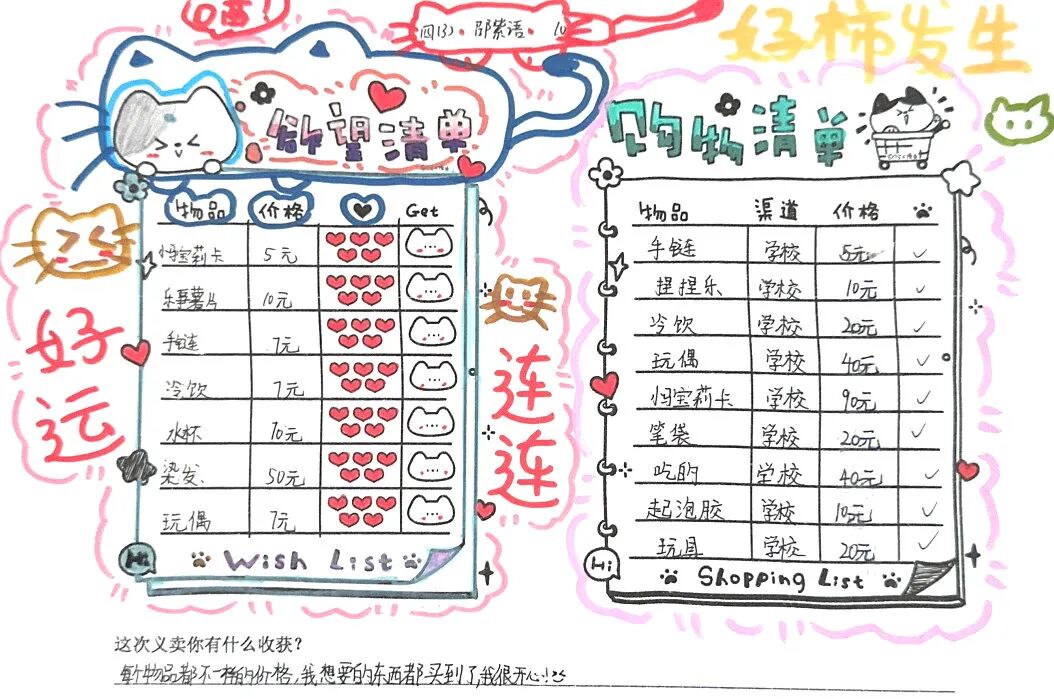 四(3) 邵紫语
好柿发生
欲望清单
物品 价格 Get
小马宝莉卡 5元
乐事薯片 10元
手链 7元
冷饮 7元
水杯 10元
染发 50元
玩偶 7元
Hi
Wish List
好运
连连
购物清单
物品 渠道 价格
手链 学校 5元
捏捏乐 学校 10元
冷饮 学校 20元
玩偶 学校 40元
小马宝莉卡 学校 90元
笔袋 学校 20元
吃的 学校 40元
起泡胶 学校 10元
玩具 学校 20元
Hi
Shopping List
这次义卖你有什么收获?
每个物品都不一样的价格,我想要的东西都买到了,我很开心!